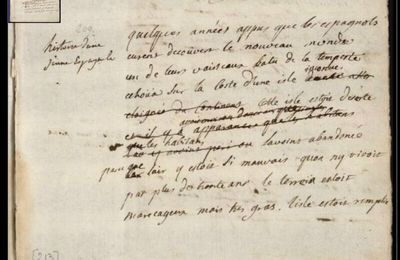 histoire d'une
jeune Espagnole
quelques années apres que les espagnols
eurent decouvert le nouveau monde
un de leurs vaisseaux batu de la tempeste
echoua sur la Coste d'une isle
eloignée du Continent. Elle isle estoit deserte
et il y a apparence que les habitans
que les habitans
l'avoient abandonné
lair y estoit si mauvais quon ny vivoit
pas plus de trente ans. le terroir estoit
marecageux mais tres gras. lisle estoit remplie
[213]